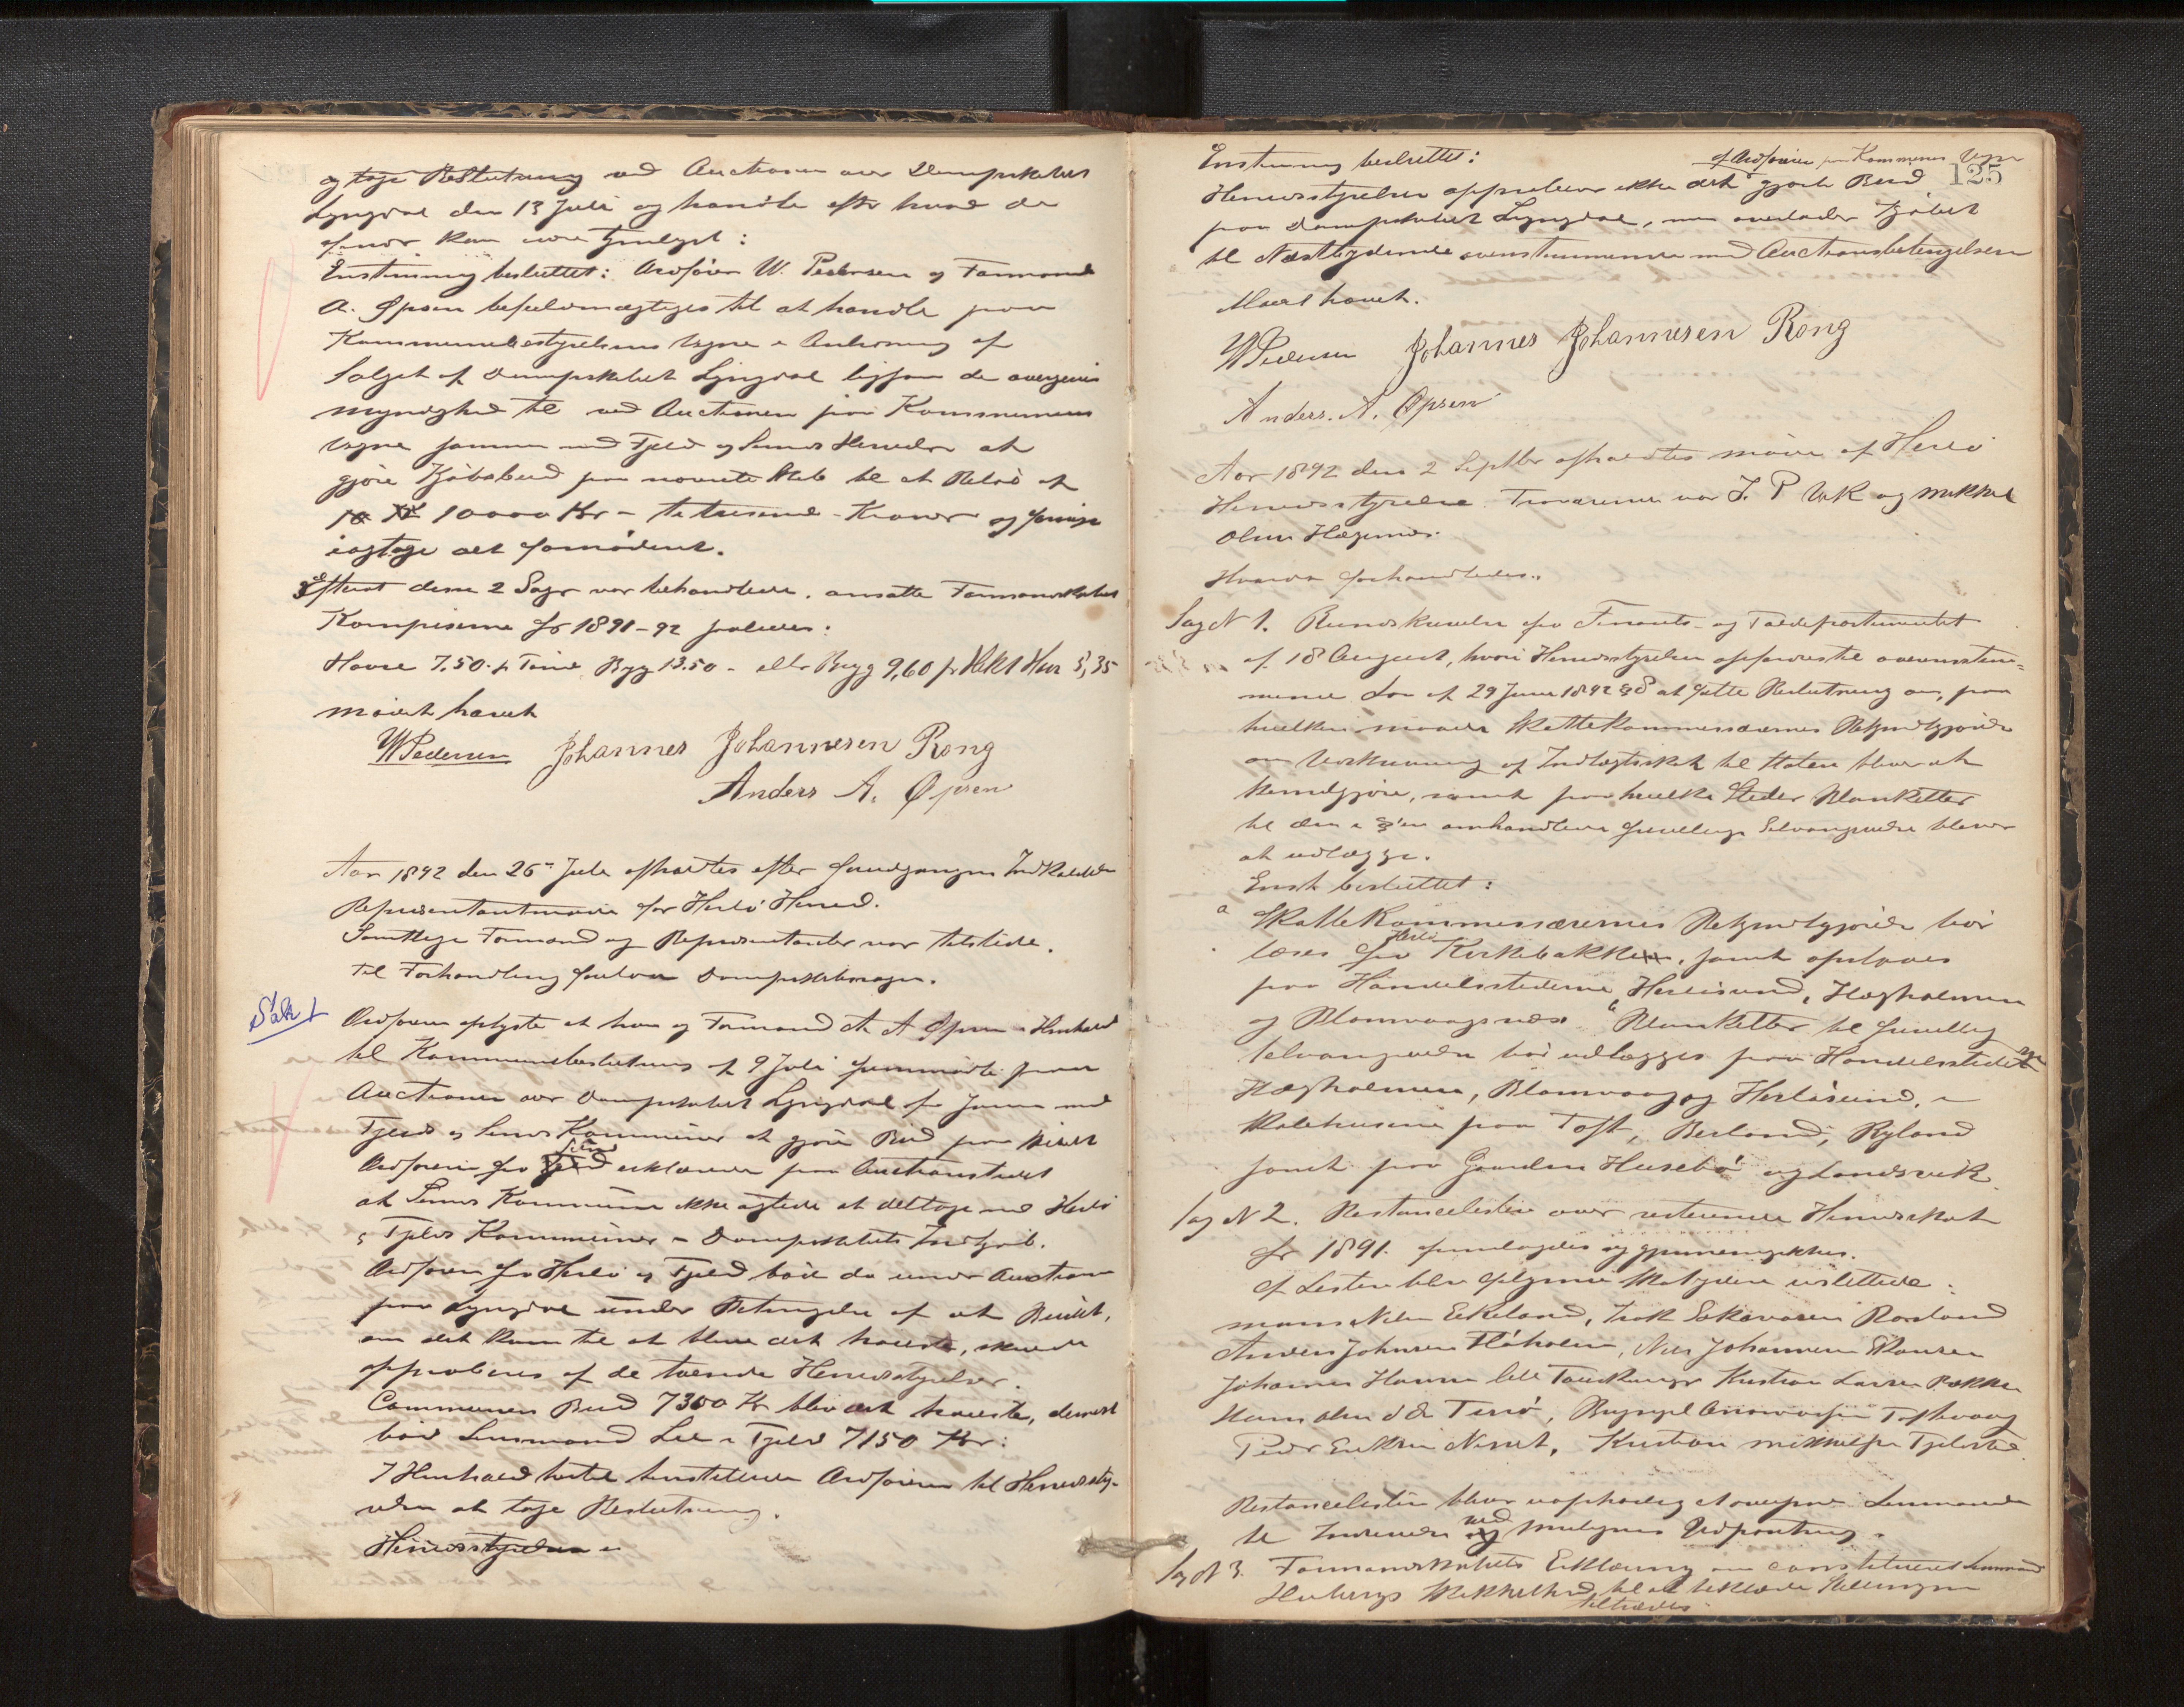 og tage Beslutning ved Auctionen over Dampskibet
Lyngdal den 13 Juli og handle efter hvad de
finder kan være tjenligst:
Enstemmig besluttet: Ordfører W. Pedersen og Formand
A. Øpsen befuldmægtiges til at handle paa
Kommunebestyrelsens Vegne i Anledning af
Salget af Dampskibet Lyngdal ligesom de overgives
Myndighed til ved Auctionen paa Kommunens
Vegne sammen med Fjeld og Sunds Herreder at
gjøre Kjøbsbud paa nævnte Skib til et Beløb af
10000 Kr - titusend - Kroner og forøvrigt
iagtage det fornødent.
Efterat disse 2 Sager var behandlede, ansatte Formandskabet
Kornpriserne for 1891-92 saaledes:
Havre 7.50 pr Tønde Byg 13.50 - eller Bygg 9,60 pr Hekt Havr 5,35
Mødet hævet
WPedersen Johannes Johannesen Rong
Anders A. Øpsen
Aar 1892 den 26de Juli afholdtes efter foregangen Indkaldelse
Repræsentantmøde for Herlø Herred.
Samtlige Formænd og Repræsentanter var tilstede.
Til Forhandling forelaa Dampskibssagen.
Sak 1
Ordføreren oplyste at han og Formand A A Øpsen i Henhold
til Kommunebeslutning af 9 Juli fremmødte paa
Auctionen over Dampskibet Lyngdal for sammen med
Fjelds og Sunds Kommuner at gjøre Bud paa Skibet
Ordføreren fra Sund erklærede paa Auctionsstedet
at Sunds Kommune ikke agtede at deltage med Herlø
og Fjelds Kommuner i Dampskibets Indkjøb.
Ordføreren fra Herlø og Fjeld bød da under Auctionen
paa Lyngdal under Betingelse af at Budet,
om det kom til at blive det høieste, skulde
approberes af de tvende Herredsstyrelser.
Communens Bud 7300 Kr blev det høieste, dernest
bød Lensmand Lie i Fjeld 7150 Kr:
I Henhold hertil henstillede Ordføreren til Herredssty-
relsen at tage Beslutning.
Herredsstyrelsen
125
Enstemmig besluttet:
af Ordføreren paa Kommunens Vegne
Herredsstyrelsen approberer ikke det gjorte Bud
paa Dampskibet Lyngdal, men overlader Kjøbet
til Næstbydende overensstemmende med Auctionsbetingelserne
Mødet hævet.
WPedersen Johannes Johannesen Rong
Anders. A. Øpsen
Aar 1892 den 2 Septbr afholdtes møde af Herlø
Herredsstyrelse. Fraværende var J. P. Vik og Mikkel
Olsen Hægernes.
Hvorda forhandledes:
Sag N 1. Rundskrivelse fra Finants- og Tolddepartementet
af 18 August, hvori Herredsstyrelsen opfordres til overensstem=
mende Lov af 29 Juni 1892 § 8 at fatte Beslutning om, paa
hvilken maade Skattekommissærernes Bekjendtgjørelse
om Udskrivning af Indtægtsskat til Staten bliver at
kundgjøre, samt paa hvilke Steder Blanketter
til den i §'en omhandlede frivillige Selvangivelse bliver
at udlægge.
Enst besluttet:
a Skattekommissærernes Bekjendtgjørelse bør
læses fra Herlø Kirkebakke, samt opslaaes
paa Handelsstederne Herløsund, Hægholmen
og Blomvaagnæs. Blanketter til frivillig
selvangivelse bør udlægges paa Handelsstederne
Hægholmen, Blomvaag og Herløsund, i
Skolehusene paa Toft, Berland, Ryland
samt paa Gaarden Husebø og Landsvik.
Sag N 2. Restanceliste over resterende Herredsskat
for 1891. fremlagdes og gjennemgikkes.
Af Listen blev følgende Skatydere udslettede:
Anders Johnsen
Johannes
Kristian Larsen Bakke
Restancelisten blev at overgive Lensmanden
til Inddrivelse ved muligens Udpantning.
Sag N 3. Formandskabets Erklæring om constitueret Lensmand
til at beklæde Stillingen
tiltrædes